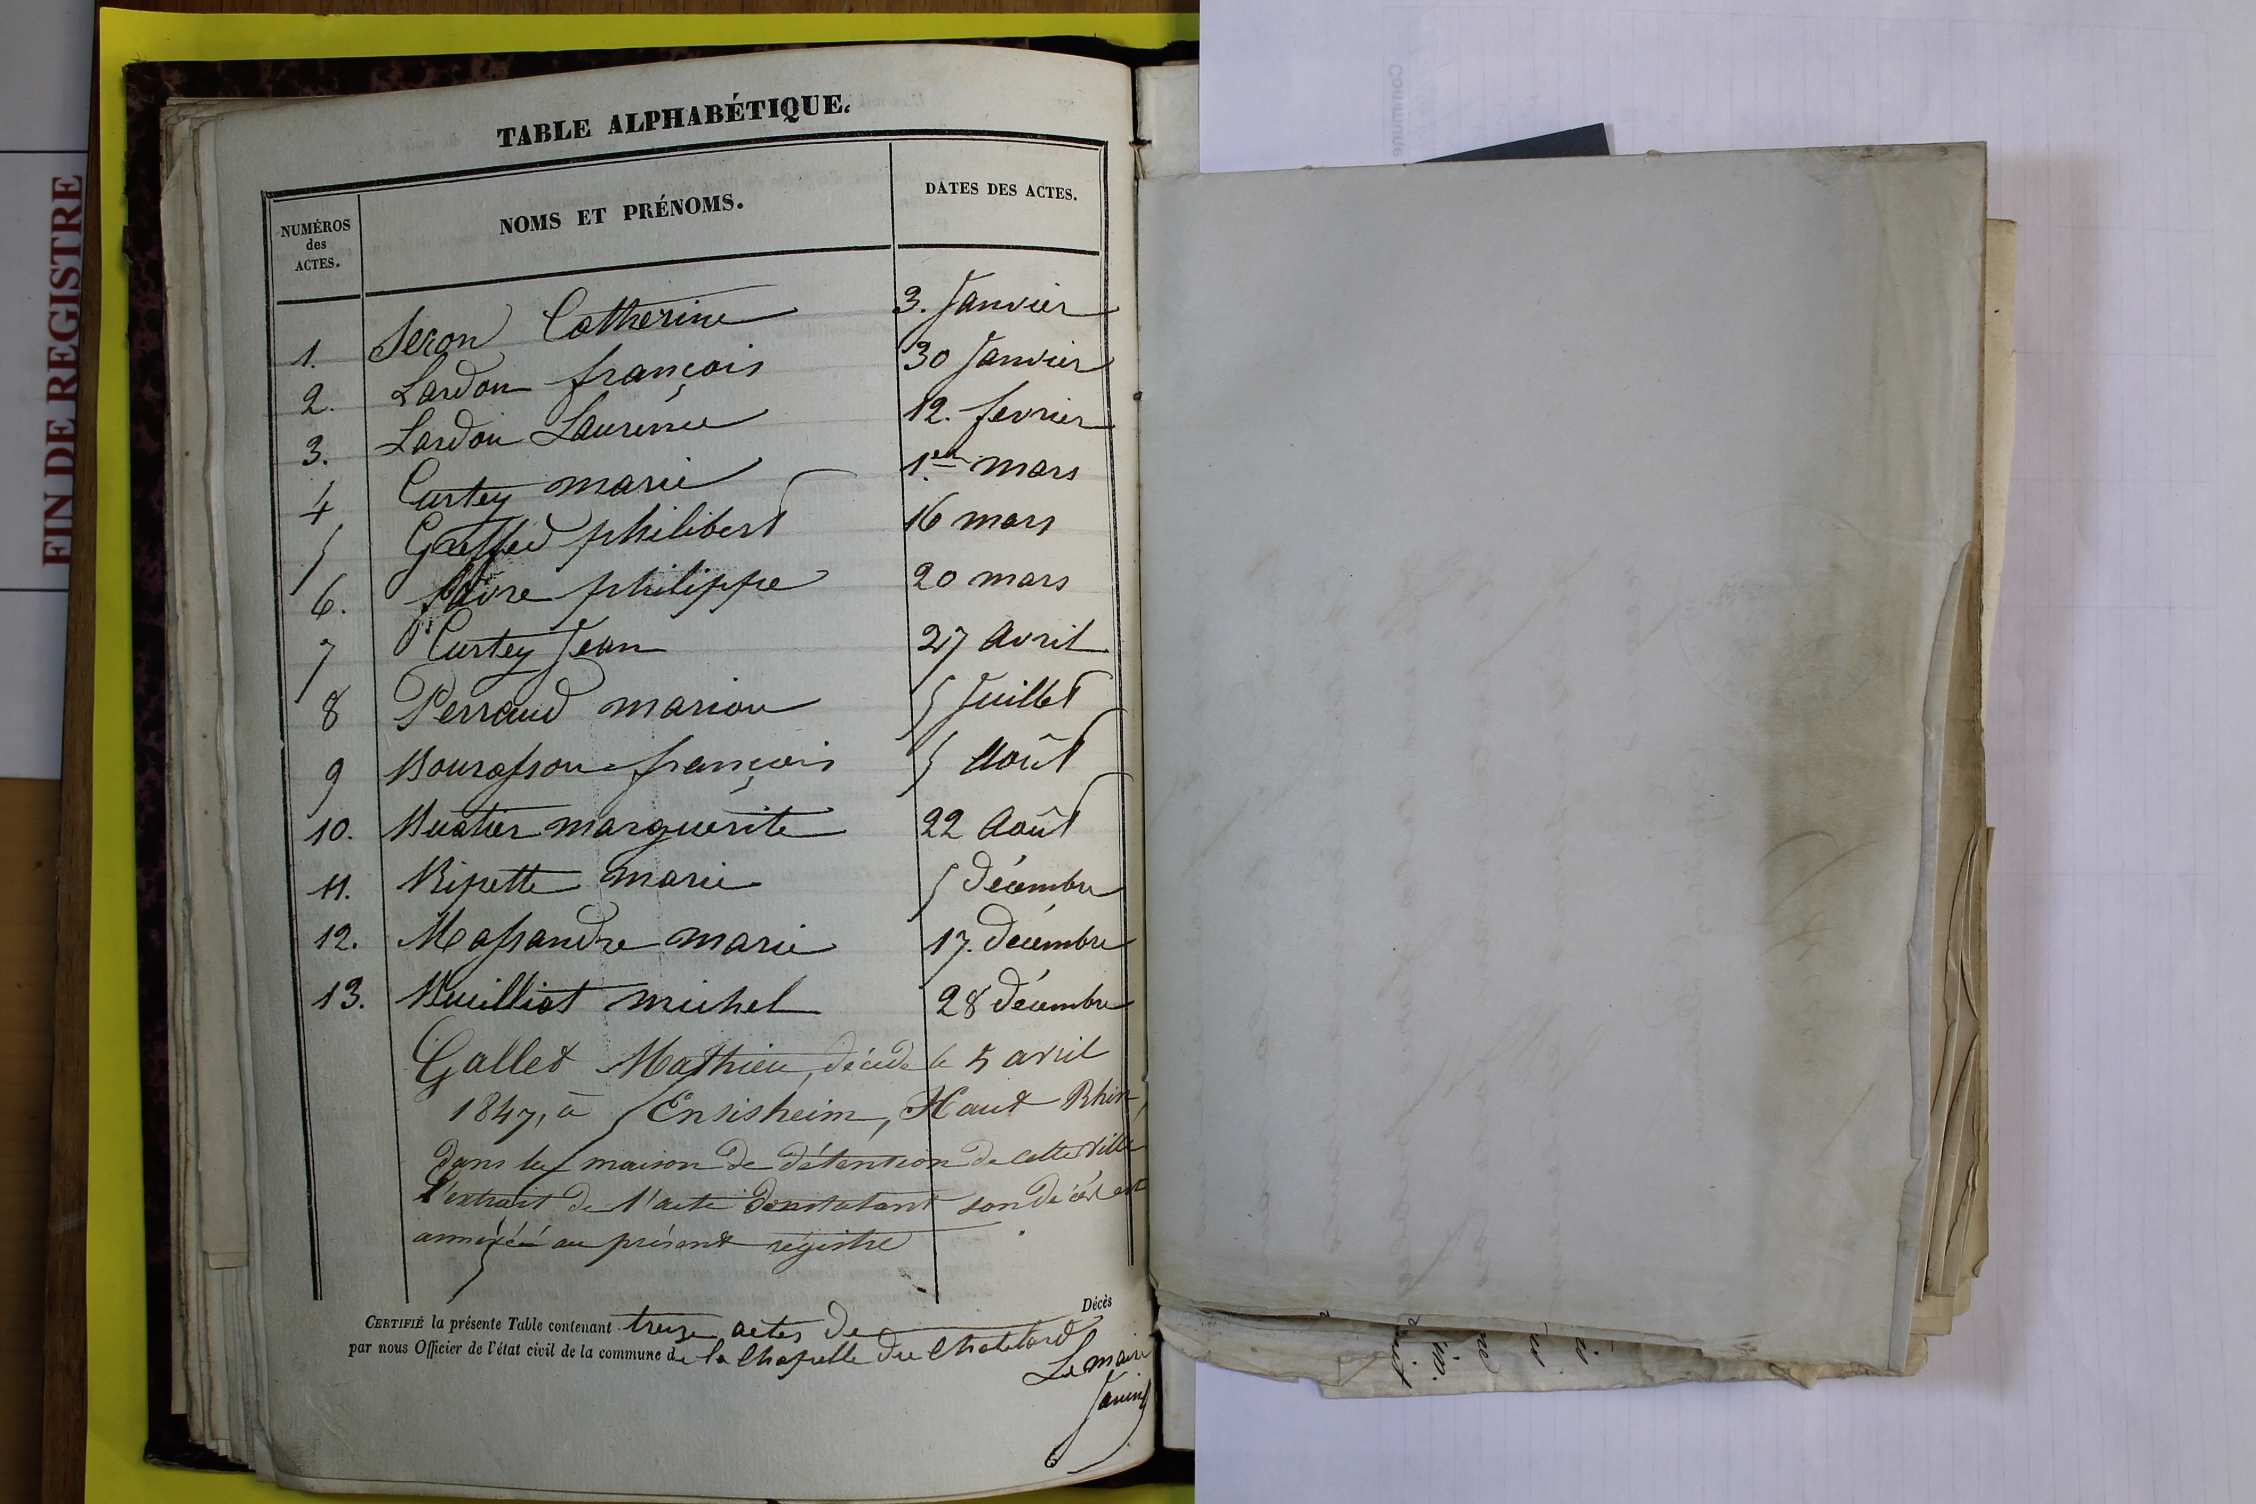 FIN DE REGISTRE
Commune
TABLE ALPHABÉTIQUE.
NUMÉROS des ACTES. NOMS ET PRÉNOMS. DATES DES ACTES.
1. Seron Catherine 3. Janvier
2. Lardon françois 30 Janvier
3. Lardon Laurence 12. fevrier
4 Curtey marie 1er mars
5 philibert 16 mars
6. favre philippe 20 mars
7 Curtey Jean 27 Avril
8 Perraud marion 5 Juillet
9 Bourasson françois 5 Août
10. Buatier marguerite 22 Août
11. Ripette marie 5 décembre
12. Massandre marie 17. décembre
13. Vuilliot michel 28 décembre
Gallet Mathieu, décédé le 5 avril
1847, à Ensisheim, Haut Rhin,
dans la maison de détention de cette ville
l'extrait de l'acte constatant son décès est
annéxéé au présent régistre
Décès
CERTIFIÉ la présente Table contenant treize actes de
par nous Officier de l'état civil de la commune de la Chapelle du Chatelard
Le maire
Janin